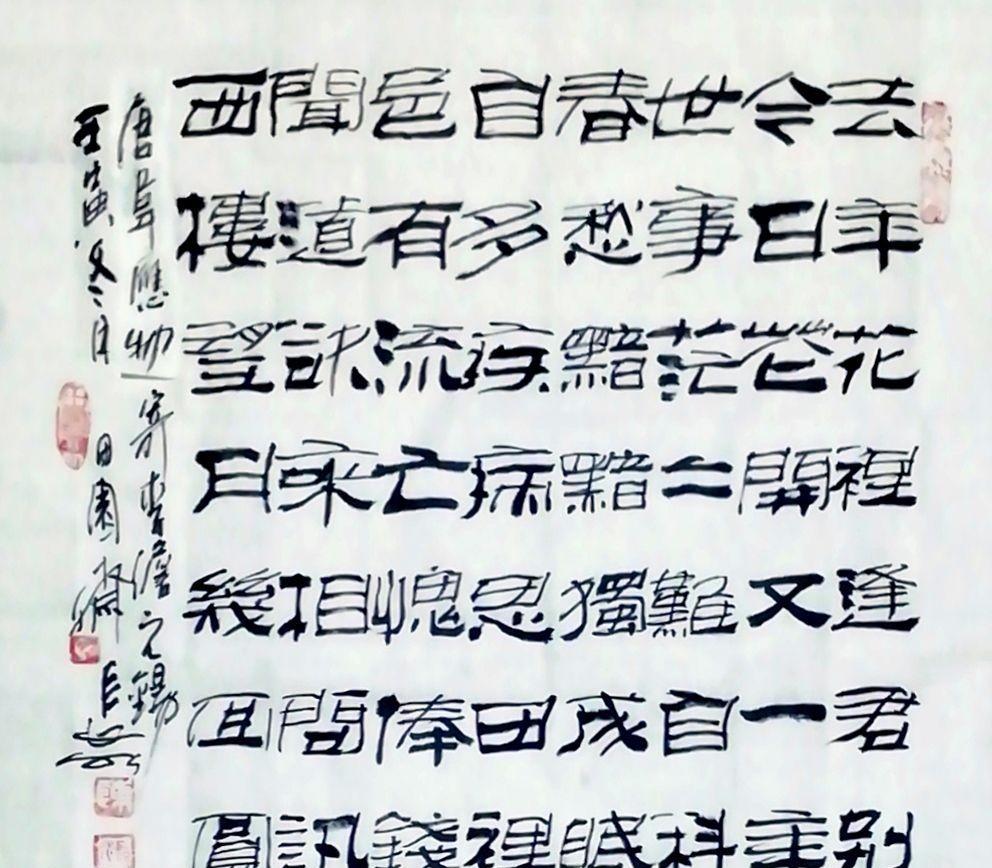 去年花裡逢君別
今日花開又一年
世事茫茫難自料
春愁黯黯獨成眠
自多疾病思田裡
邑有流亡愧俸錢
聞道來相問訊
西樓望月幾回圓
唐韋應物寄李儋元錫
壬寅冬月田園齋